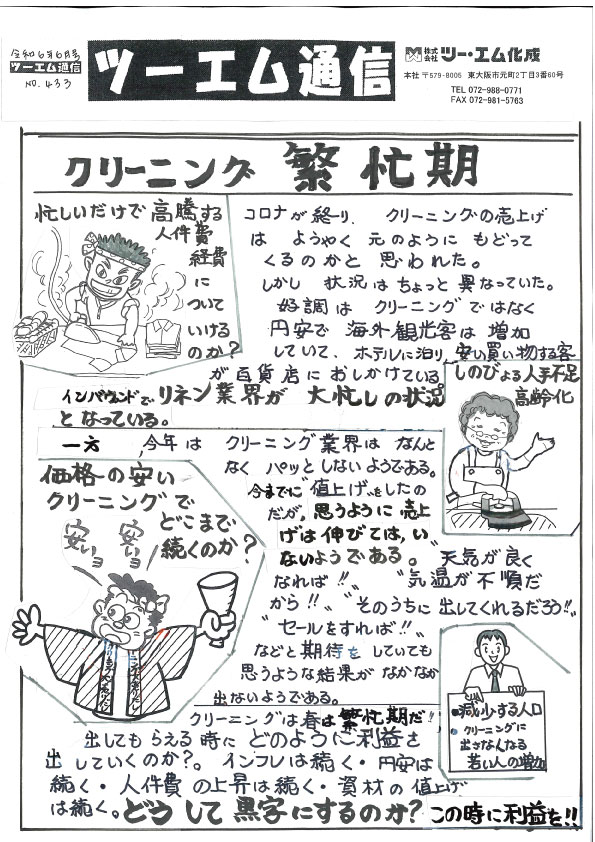 令和6年6月号
ツーエム通信
NO.433
ツーエム通信
株式会社 ツー・エム化成
本社 〒579-8005 東大阪市元町2丁目3番60号
TEL 072-988-0771
FAX 072-981-5763
クリーニング 繁忙期
忙しいだけで高騰する
人件費
経費
に
ついて
いける
のか?
コロナが終り、クリーニングの売上げ
は ようやく 元のように もどって
くるのかと 思われた。
しかし 状況はちょっと 異なっていた。
好調は クリーニングではなく
円安で 海外観光客は 増加
していて、ホテルに泊り、安い買い物する客
が百貨店におしかけている
インバウンドで、リネン業界が 大忙しの状況
となっている。
しのびよる人手不足
高齢化
一方、今年は クリーニング業界は なんと
なく パッとしないようである。
今までに"値上げ"をしたの
だが、思うように 売上
げは伸びては、い
ないようである。"天気が良く
なれば!!" "気温が不順だ
から!!" "そのうちに出してくれるだろう!!"
"セールをすれば!!"
などと期待をしていても
思うような結果が なかなか
出ないようである。
価格の安い
クリーニングで
どこまで
続くのか?
安いョ
安いョ
減少する人口
クリーニングに
出さなくなる
若い人の増加
クリーニングは春は繁忙期だ!!
出してもらえる時に どのように利益を
出していくのか?。インフレは続く・円安は
続く・人件費の上昇は続く・資材の値上げ
は続く。どうして黒字にするのか?この時に利益を!!